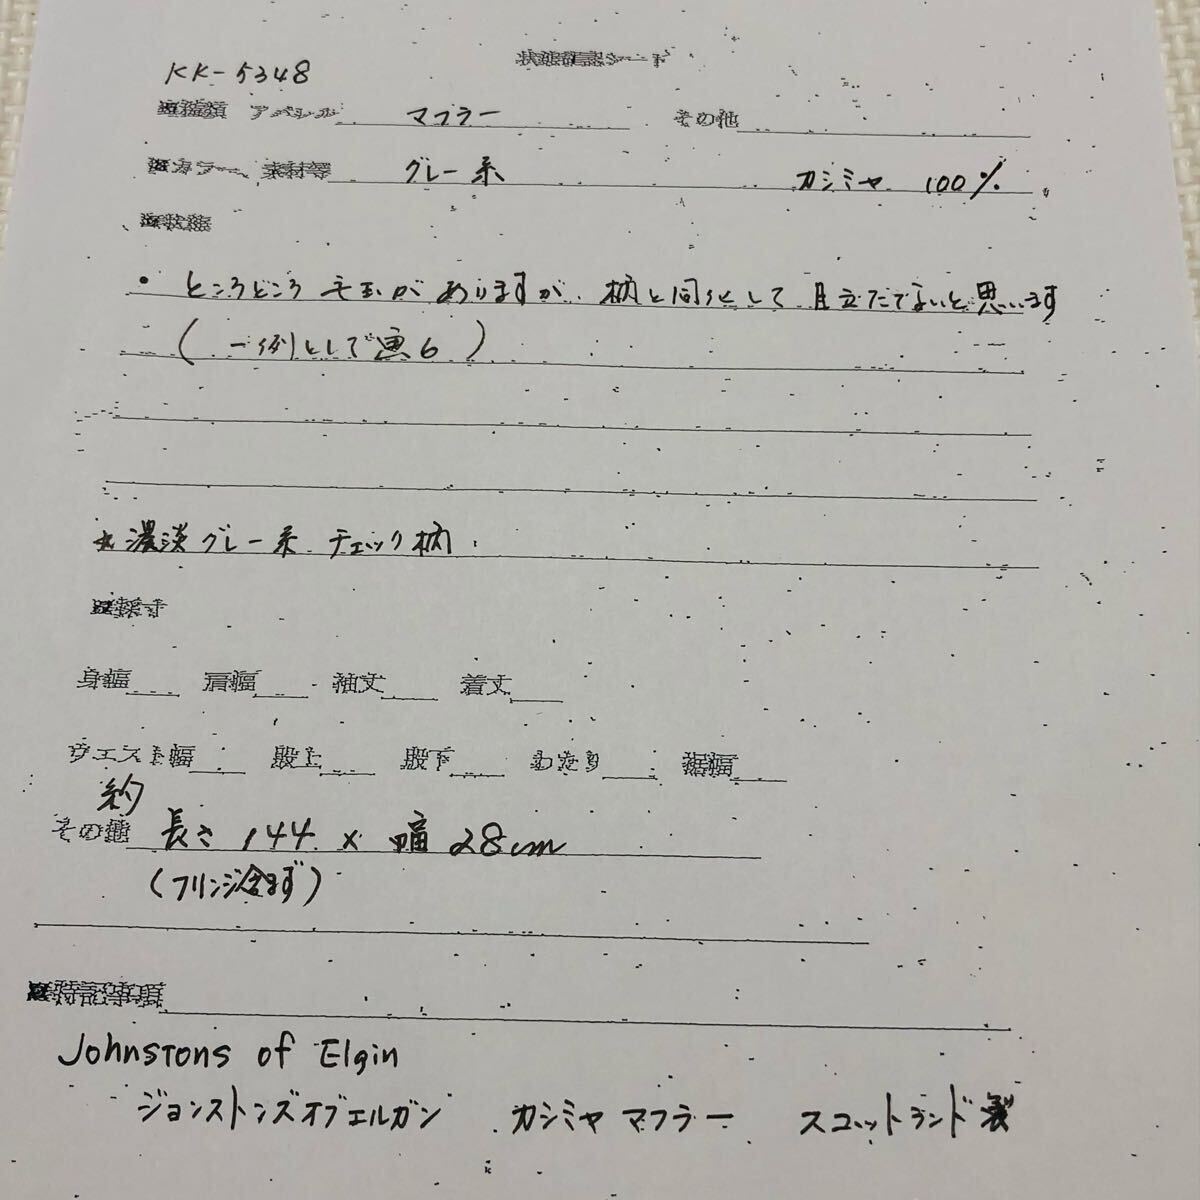 状態確認シート
KK-5348
※種類 アパレル マフラー その他
※カラー、素材等 グレー系 カシミヤ 100%
※状態
・ところどころ 毛玉がありますが、柄と同化して目立たないと思います
(一例として画6)
★濃淡グレー系 チェック柄
※採寸
身幅 肩幅 袖丈 着丈
ウエスト幅 股上 股下 わたり 裾幅
約
その他 長さ 144 × 幅 28cm
(フリンジ含まず)
※特記事項
Johnstons of Elgin
ジョンストンズオブエルガン カシミヤ マフラー スコットランド製